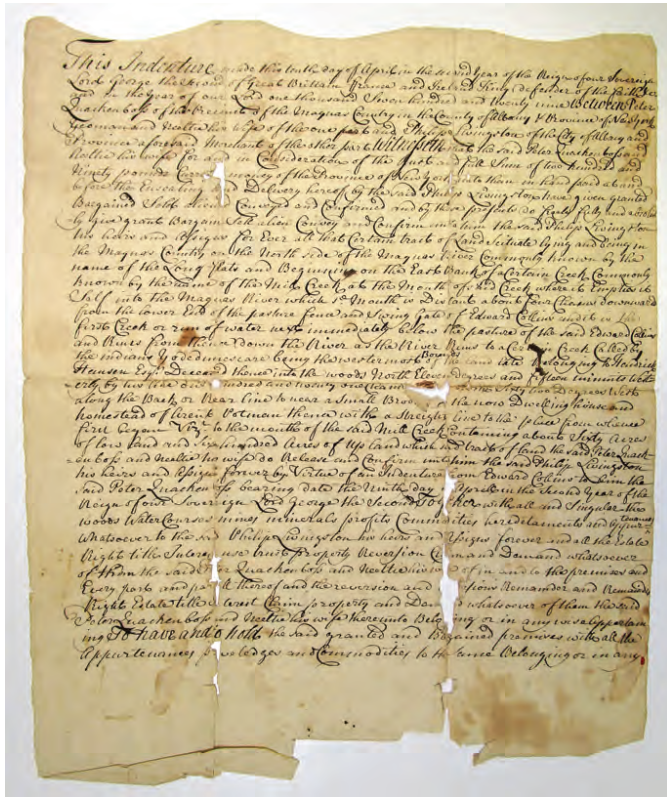 This Indenture made this tenth day of April in the second year of the Reign of our Sovereign
Lord George the Second of Great Brittain France and Ireland King defender of the Faith &c
and in the year of our Lord one thousand Seven hundred and twenty nine Between Peter
Quackenboss of the Precincts of the Maquas Country in the County of albany & Province of New york
Yeoman and Neeltie his wife of the one part and Philip Livingston of the City of albany and
Province aforesaid Merchant of the other part Witnesseth that the said Peter Quackenboss and
Neeltie his wife for and in Consideration of the Just and full Sume of two hundred and
Ninety pounds Curr money of the Province of New york unto them in hand paid at and
before the Ensealing and Delivery hereof by the said Philip Livingston have given granted
Bargained Sold Conveyed and Confirmed and by these presents do freely fully and
give grant Bargain Sell alien Convey and Confirm unto him the said Philip Livingston
his heirs and assigns for Ever all that Certain tract of Land Scituate lying and being in
the Maquas Country on the North side of the Maquas River Commonly known by the
name of the Long flats and Beginning on the East Bank of a Certain Creek Commonly
known by the name of the Mill Creek at the Mouth of said Creek where it Empties it
Self into the Maquas River which sd Mouth is Distant about four Chains downward
from the lower End of the pasture fence and Swing Gate of Edward Collins and is
first Creek or run of water next immediately below the pasture of the said Edward Collins
and Runs from thence down the River as the River Runs to a Creek Called by
the indians being the westermost Bounds of the land late belonging to Hendrick
Hansen Esqr Deceased thence into the woods North Eleven degrees and fifteen minutes
erly by two line one hundred and twenty one Chains Sixty two degrees West
along the Back or Rear line to near a Small Brook the now dwelling house and
homestead of Arent Potman thence with a Streight line to the place from whence
first begun to the mouth of the said Mill Creek Containing about Sixty Acres
of low land and Six hundred Acres of Upland which said tract of land the said Peter Quack-
enboss and Neeltie his wife do Release and Confirm unto him the said Philip Livingston
his heirs and assigns forever by Virtue of an Indenture from Edward Collins to him the
said Peter Quackenboss bearing date the Ninth day of April in the Second Year of the
Reign of our Sovereign Lord George the Second Together with all and Singular the
woods Water Courses mines minerals profits Commodities hereditaments and appurtenances
whatsoever to the said Philip Livingston his heirs and assigns forever and all the Estate
Right title Interest use trust property Reversion Claim and Demand whatsoever
of them the said Peter Quackenboss and Neeltie his wife of in and to the premises and
Every part and parcell thereof and the reversion and Remainder and Remainders
Right Estate title Interest Claim property and Demand whatsoever of them the said
Peter Quackenboss and Neeltie his wife thereunto Belonging or in any wise appertain
ing To have and to hold the said granted and Bargained premises with all the
Appurtenances priviledges and Commodities to the same Belonging or in any